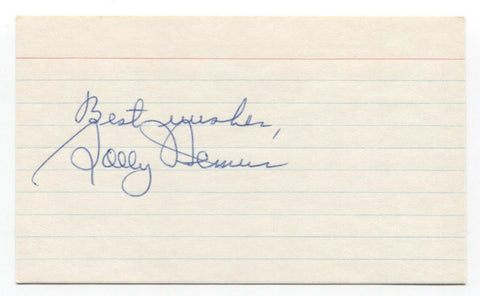 Best wishes,
Solly Hemus